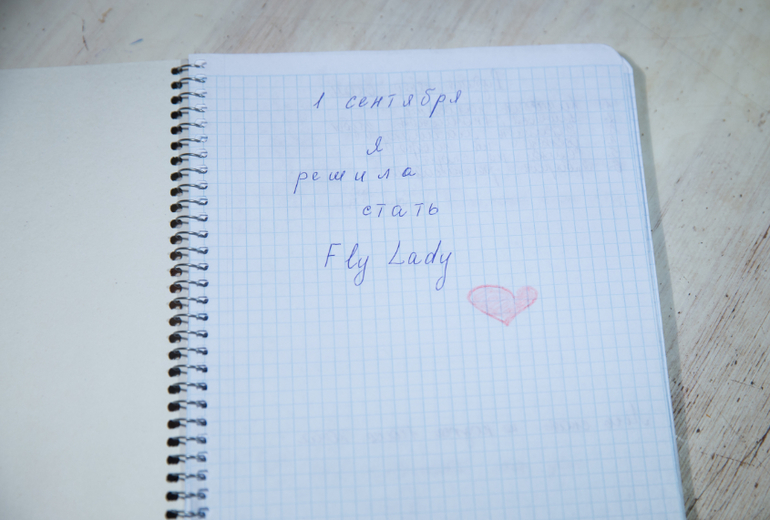 1 сентября
я
решила
стать
Fly Lady